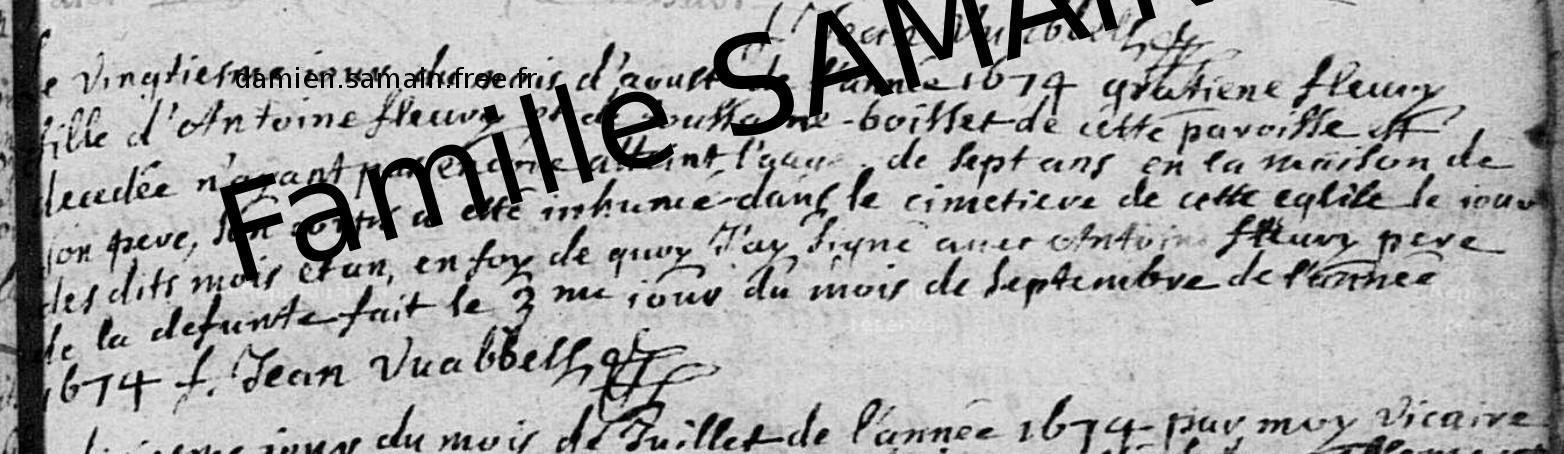 Jean Vuabbell
Famille SAMAIN
damien.samain.free.fr
Le vingtiesme iour du mois d'aoust de l'année 1674 gratiene fleury
fille d'Antoine fleury et de toussaine boisset de cette paroisse est
decedée n'ayant pas encore atteint l'aage de sept ans en la maison de
son pere, son corps a esté inhumé dans le cimetiere de cette eglise le iour
des dits mois et an, en foy de quoy J'ay signé avec Antoine fleury pere
de la defunte fait le 3 me iour du mois de septembre de l'année
1674 f. Jean Vuabbell
iour du mois de Juillet de l'année 1674 par moy vicaire